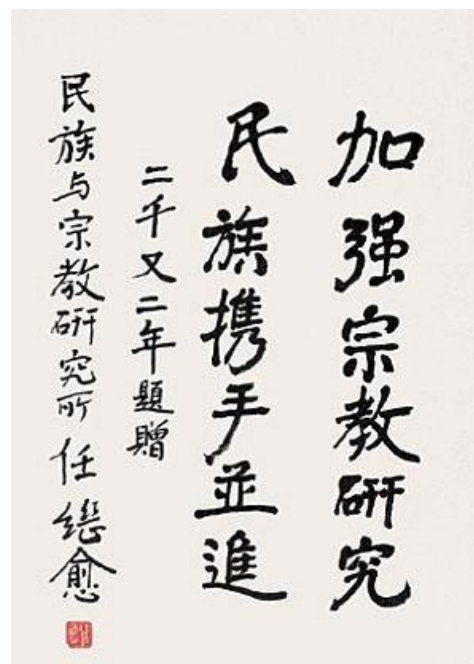 加强宗教研究
民族携手並進
二千又二年題贈
民族与宗教研究所 任继愈